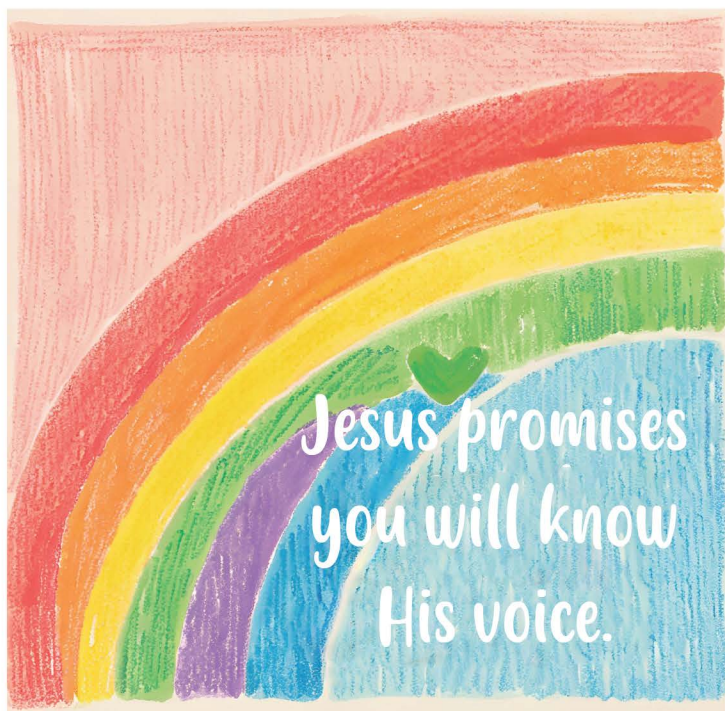 Jesus promises
you will know
His voice.